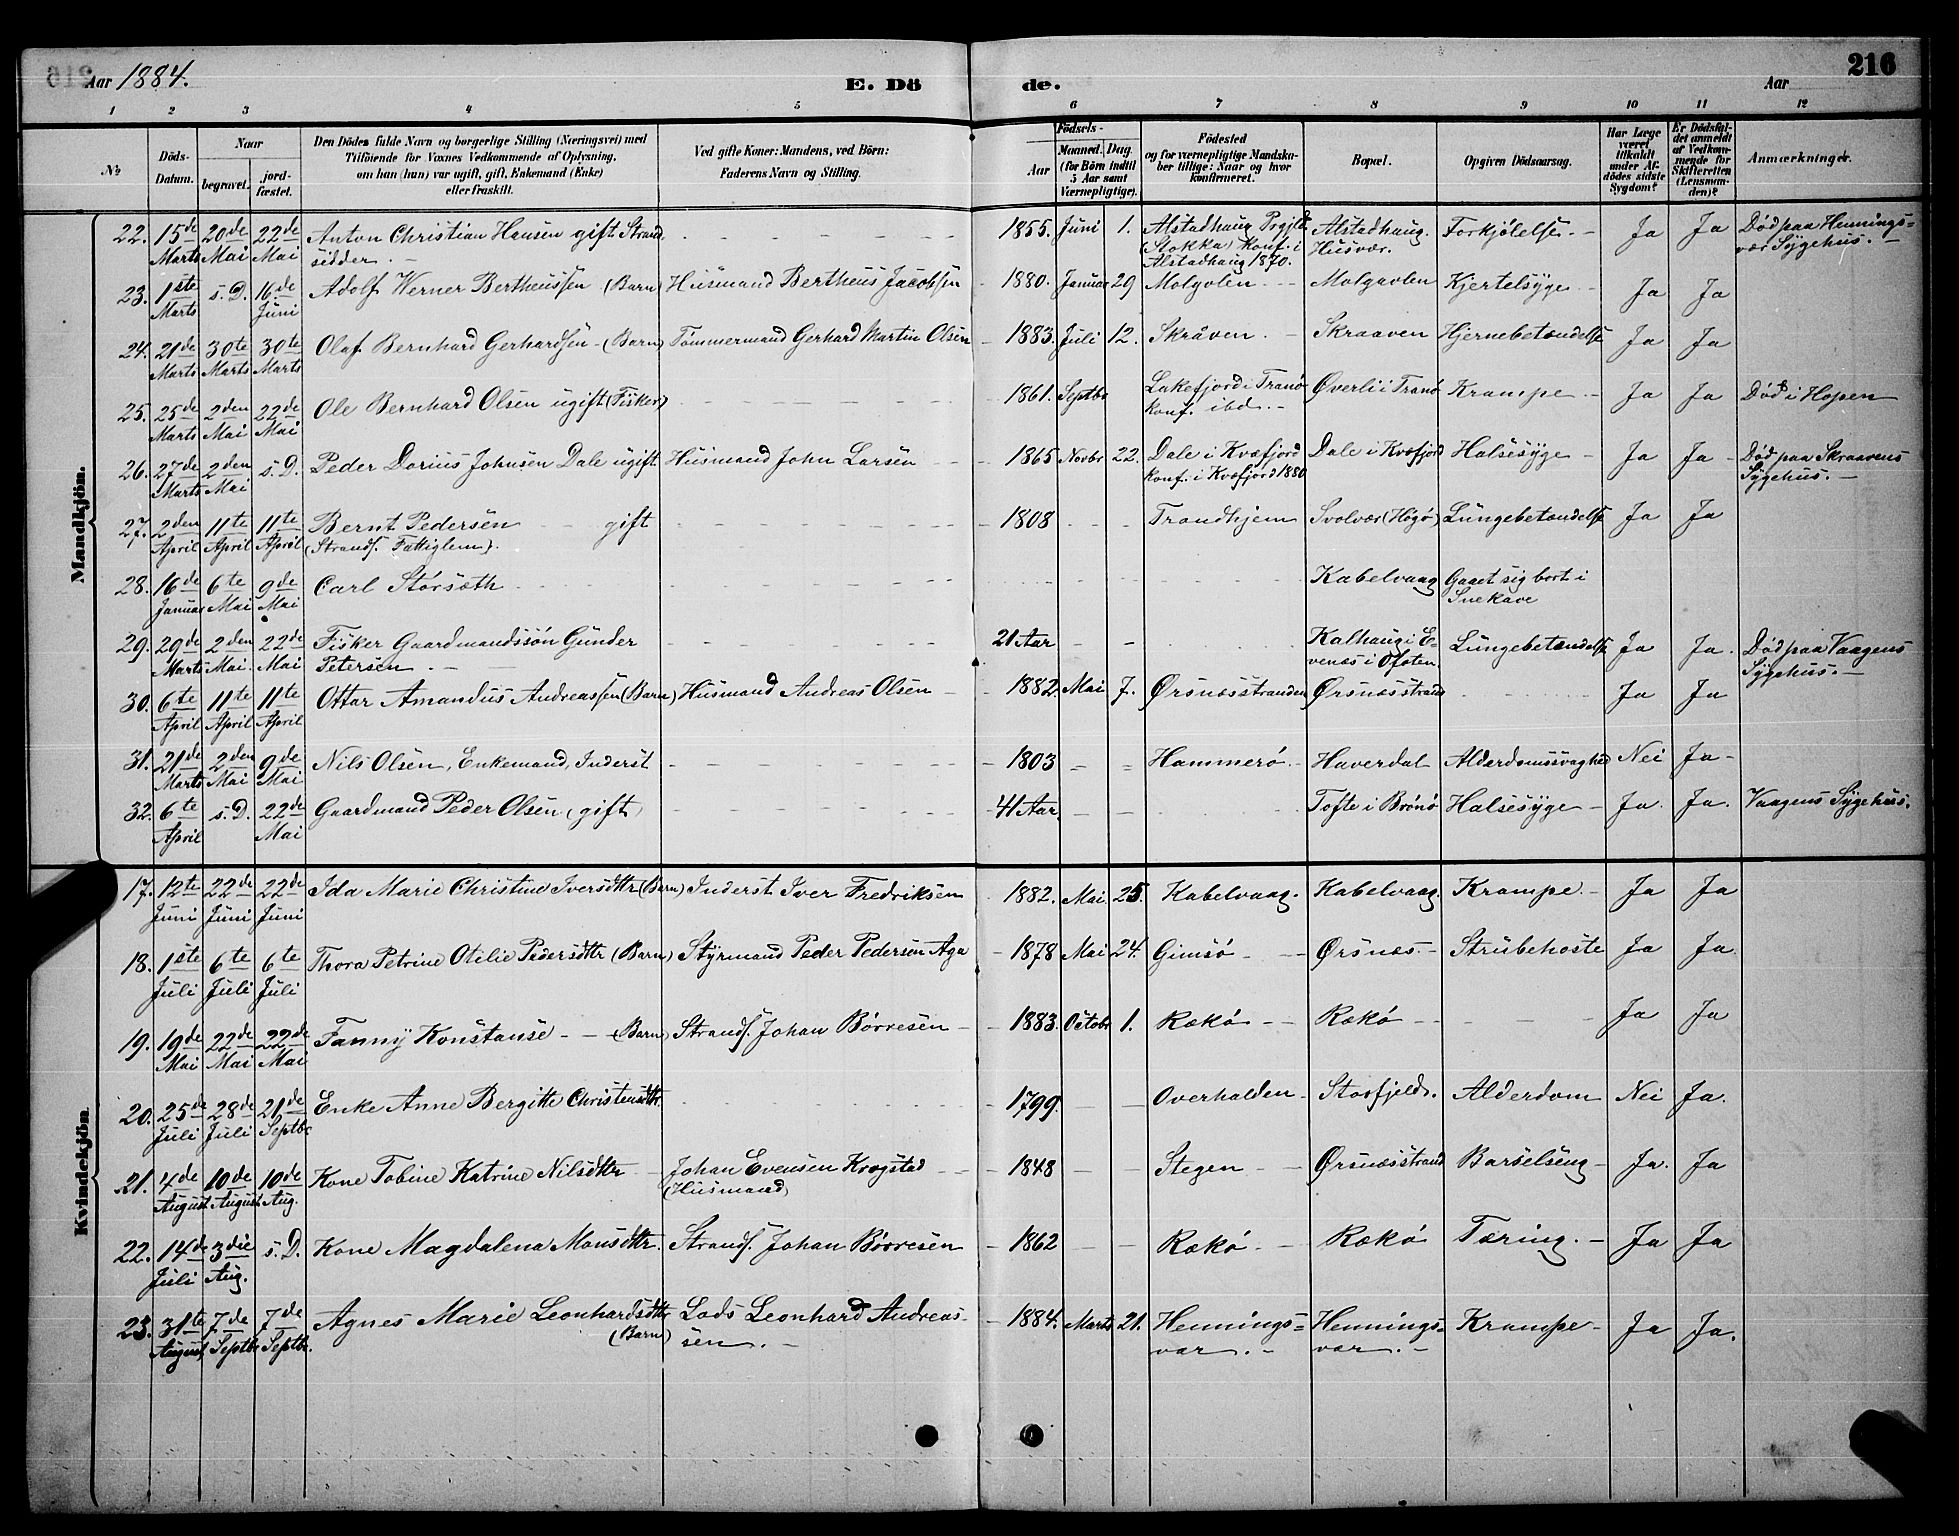 216
Aar 1884.
E. Döde.
Aar
1 2 3 4 5 6 7 8 9 10 11 12
No
Döds-Datum.
Naar
begravet.
jordfæstet.
Den Dödes fulde Navn og borgerlige Stilling (Næringsvei) med
Tilföiende for Voxnes Vedkommende af Oplysning,
om han (hun) var ugift, gift, Enkemand (Enke)
eller fraskilt.
Ved gifte Koner: Mandens, ved Börn:
Faderens Navn og Stilling.
Födsels-
Aar
Maaned. Dag.
(for Börn indtil
5 Aar samt
Værnepligtige).
Födested
og for værnepligtige Mandska-
ber tillige: Naar og hvor
konfirmeret.
Bopæl.
Opgiven Dödsaarsag.
Har Læge
været
tilkaldt
under Af-
dödes sidste
Sygdom?
Er Dödsfal-
det anmeldt
af Vedkom-
mende for
Skifteretten
(Lensman-
den)?
Anmærkninger.
Mandkjön.
22. 15de Marts 20de Mai 22de Mai Anton Christian Hansen gift Strandsidder. 1855. Juni 1. Alstadhaug Prgjld (Stokka) konf. i Alstadhaug 1870. Alstadhaug. Husvær. Forkjölelse. Ja Ja Död paa Hennings=vær Sygehus.
23. 1ste Marts s. D. 16de Juni Adolf Werner Bertheussen (Barn) Husmand Bertheus Jacobsen 1880. Januar 29 Molgolen Molgavlen Kjertelsyge Ja Ja
24. 21de Marts 30te Marts 30te Marts Olaf Bernhard Gerhardsen (Barn) Tömmermand Gerhard Martin Olsen 1883. Juli 12. Skråven. Skraaven Hjernebetændelse Ja Ja
25. 25de Marts 2den Mai 22de Mai Ole Bernhard Olsen ugift (Fisker) 1861. Septbr Lakefjord i Tranö konf. ibd. Øverli i Tranö Krampe Ja Ja Död i Hopen
26. 27de Marts 2den Mai s. D. Peder Dorius Johnsen Dale ugift Husmand John Larsen 1865 Novbr 22. Dale i Kvæfjord konf. i Kvæfjord 1880 Dale i Kvæfjord Halsesyge Ja Ja Död paa Skraavens Sygehus.
27. 2den April 11te April 11te April Bernt Pedersen gift (Strands. Fattiglem). 1808 Trondhjem Svolvær (Högö) Lungebetændelse Ja Ja
28. 16de Januar 6te Mai 9de Mai Carl Störsæth Kabelvaag Gaaet sig bort i Snekave
29. 29de Marts 2den Mai. 22de Mai Fisker Gaardmandssön Günder Petersen 21 Aar Kalhaug i Evenæs i Ofoten Lungebetændelse Ja Ja. Död paa Vaagens Sygehus.
30. 6te April 11te April 11te April Ottar Amandus Andreassen (Barn) Husmand Andreas Olsen 1882 Mai 7. Ørsnæsstranden Ørsnæsstrand Ja Ja
31. 21de Marts 2den Mai 9de Mai Nils Olsen, Enkemand, Inderst 1803 Hammerö. Haverdal Alderdomssvaghed Nei Ja
32. 6te April s. D. 22de Mai Gaardmand Peder Olsen (gift) 41 Aar Tofte i Brönö Halsesyge Ja. Ja. Vaagens Sygehus.
Kvindekjön.
17. 12te Juni 22de Juni 22de Juni Ida Marie Christine Iversdttr (Barn) Inderst Iver Fredriksen 1882. Mai 25. Kabelvaag. Kabelvaag. Krampe. Ja Ja
18. 1ste Juli 6te Juli 6te Juli Thora Petrine Otilie Pedersdttr (Barn) Styrmand Peder Pedersen Aga 1878 Mai 24. Gimsö Ørsnæs. Strubehoste Ja Ja.
19. 19de Mai 22de Mai 22de Mai Fanny Konstanse (Barn) Strands. Johan Börresen 1883. Octobr 1. Rækö Rækö Ja Ja
20. 25de Juli 28de Juli 21de Septbr Enke Anne Bergitte Christensdttr. 1799. Overhalden Storfjeld. Alderdom Nei Ja.
21. 4de August 10de August 10de Aug. Kone Tobine Katrine Nilsdttr Johan Evensen Krogstad (Husmand) 1848 Stegen Ørsnæsstrand Barselseng Ja. Ja
22. 14de Juli 3die Aug. s. D. Kone Magdalena Monsdttr. Strands. Johan Börresen 1862 Rækö. Rækö Tæring. Ja Ja
23. 31te August 7de Septbr 7de Septbr. Agnes Marie Leonhardsdttr (Barn) Lods Leonhard Andreassen. 1884. Marts 21. Hennings=vær. Hennings=vær. Krampe Ja Ja.